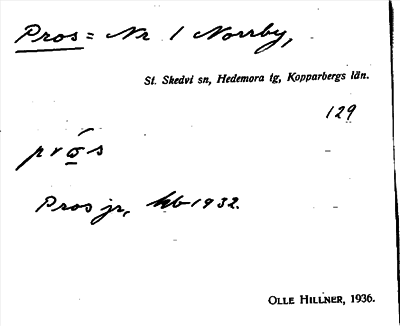 Pros = Nr 1 Norrby,
St. Skedvi sn, Hedemora tg, Kopparbergs län.
129
prọ́s
Pros jr, hb 1932.
OLLE HILLNER, 1936.